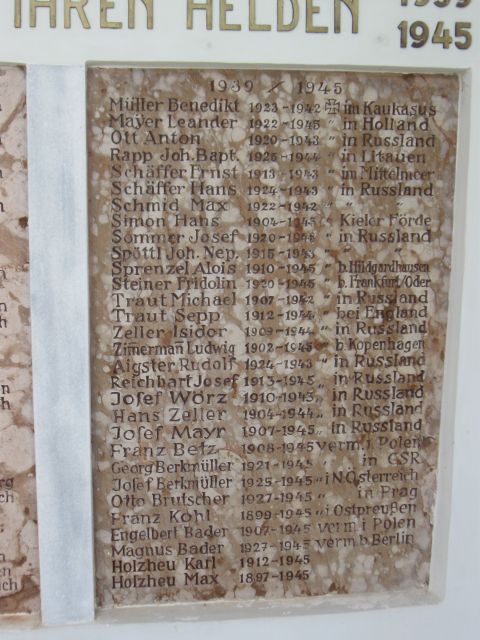 IHREN HELDEN
1939
1945
1939 / 1945
Müller Benedikt 1923-1942 ✠ im Kaukasus
Mayer Leander 1922-1945 " in Holland
Ott Anton 1920-1943 " in Russland
Rapp Joh. Bapt. 1925-1944 " in Litauen
Schäffer Ernst 1913-1943 " im Mittelmeer
Schäffer Hans 1924-1943 " in Russland
Schmid Max 1922-1942 " " "
Simon Hans 1904-1945 " Kieler Förde
Sommer Josef 1920-1943 " in Russland
Spöttl Joh. Nep. 1915-1943 " " "
Sprenzel Alois 1910-1945 " b. Hildgardhausen
Steiner Fridolin 1920-1945 " b. Frankfurt/Oder
Traut Michael 1907-1942 " in Russland
Traut Sepp 1912-1944 " bei England
Zeller Isidor 1909-1944 " in Russland
Zimerman Ludwig 1902-1945 " b. Kopenhagen
Aigster Rudolf 1924-1943 " in Russland
Reichhart Josef 1913-1945 " in Russland
Josef Wörz 1910-1943 " in Russland
Hans Zeller 1904-1944 " in Russland
Josef Mayr 1907-1945 " in Russland
Franz Betz 1908-1945 verm. i. Polen
Georg Berkmüller 1921-1945 " in ČSR
Josef Berkmüller 1925-1945 " i N. Österreich
Otto Brutscher 1927-1945 " in Prag
Franz Kohl 1899-1945 " i Ostpreußen
Engelbert Bader 1907-1945 verm i Polen
Magnus Bader 1927-1945 verm b. Berlin
Holzheu Karl 1912-1945
Holzheu Max 1897-1945